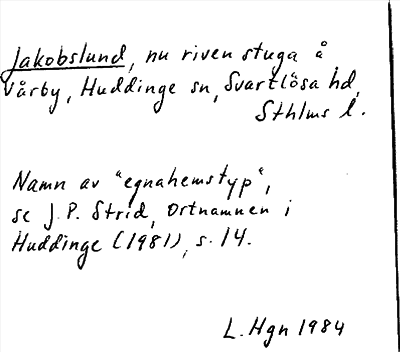 Jakobslund, nu riven stuga å
Vårby, Huddinge sn, Svartlösa hd,
Sthlms l.
Namn av "egnahemstyp",
se J.P. Strid, Ortnamnen i
Huddinge (1981), s. 14.
L. Hgn 1984